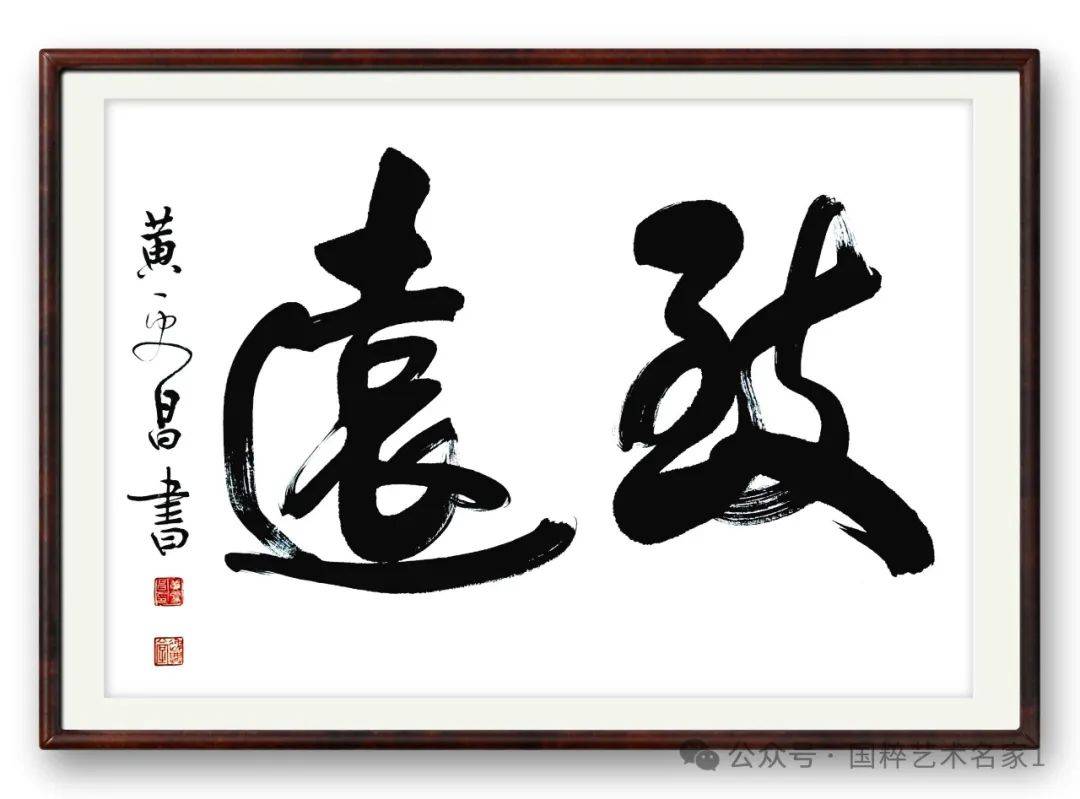 致遠
黄更昌書
公众号 · 国粹艺术名家1